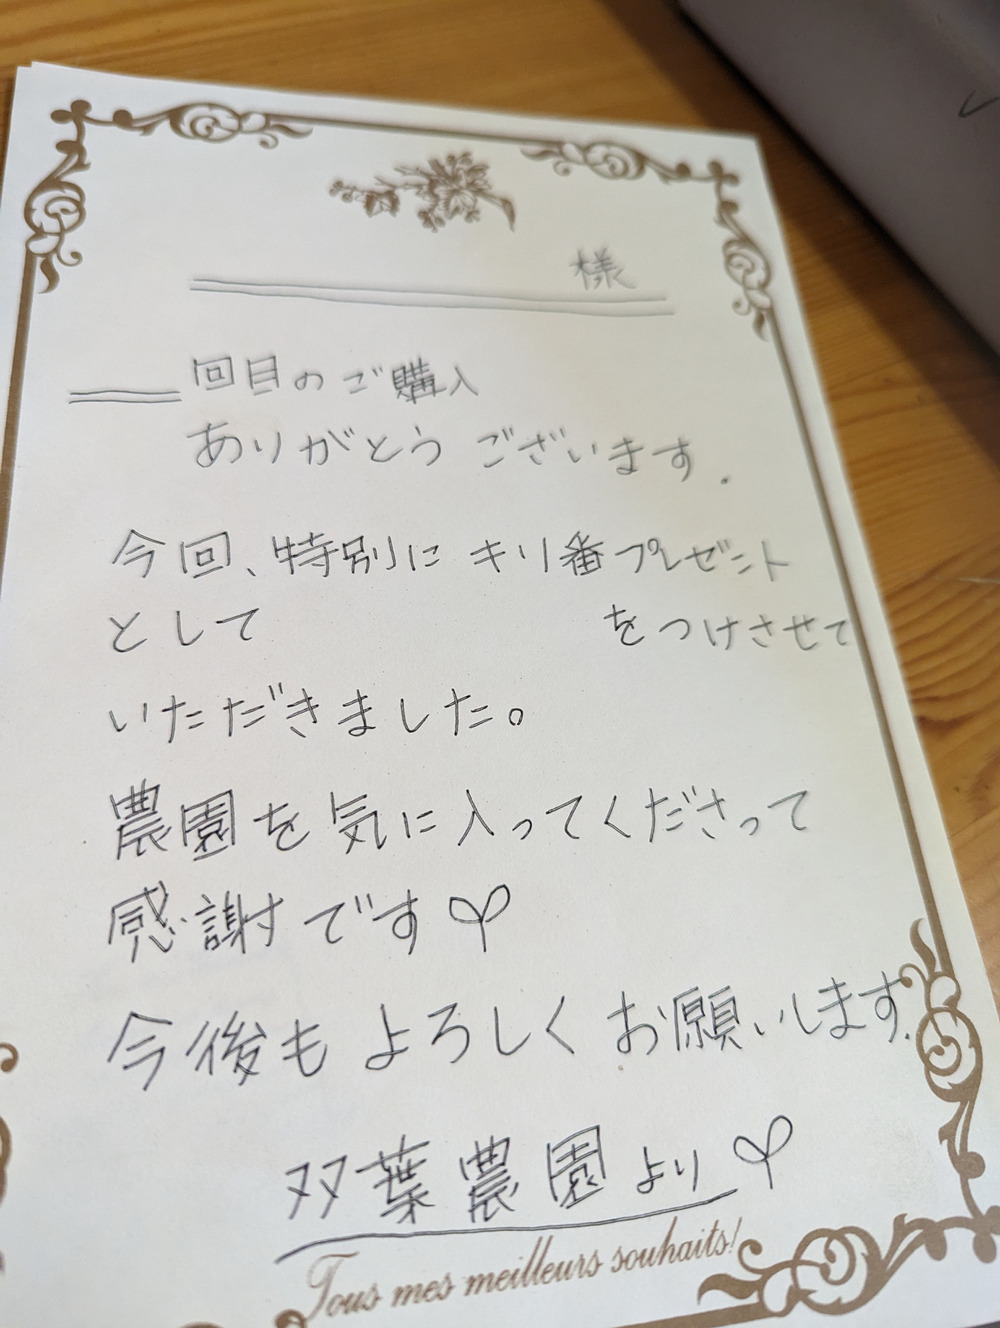 様
回目のご購入
ありがとうございます.
今回、特別にキリ番プレゼント
として をつけさせて
いただきました。
農園を気に入ってくださって
感謝です
今後もよろしくお願いします.
双葉農園より
Tous mes meilleurs souhaits!